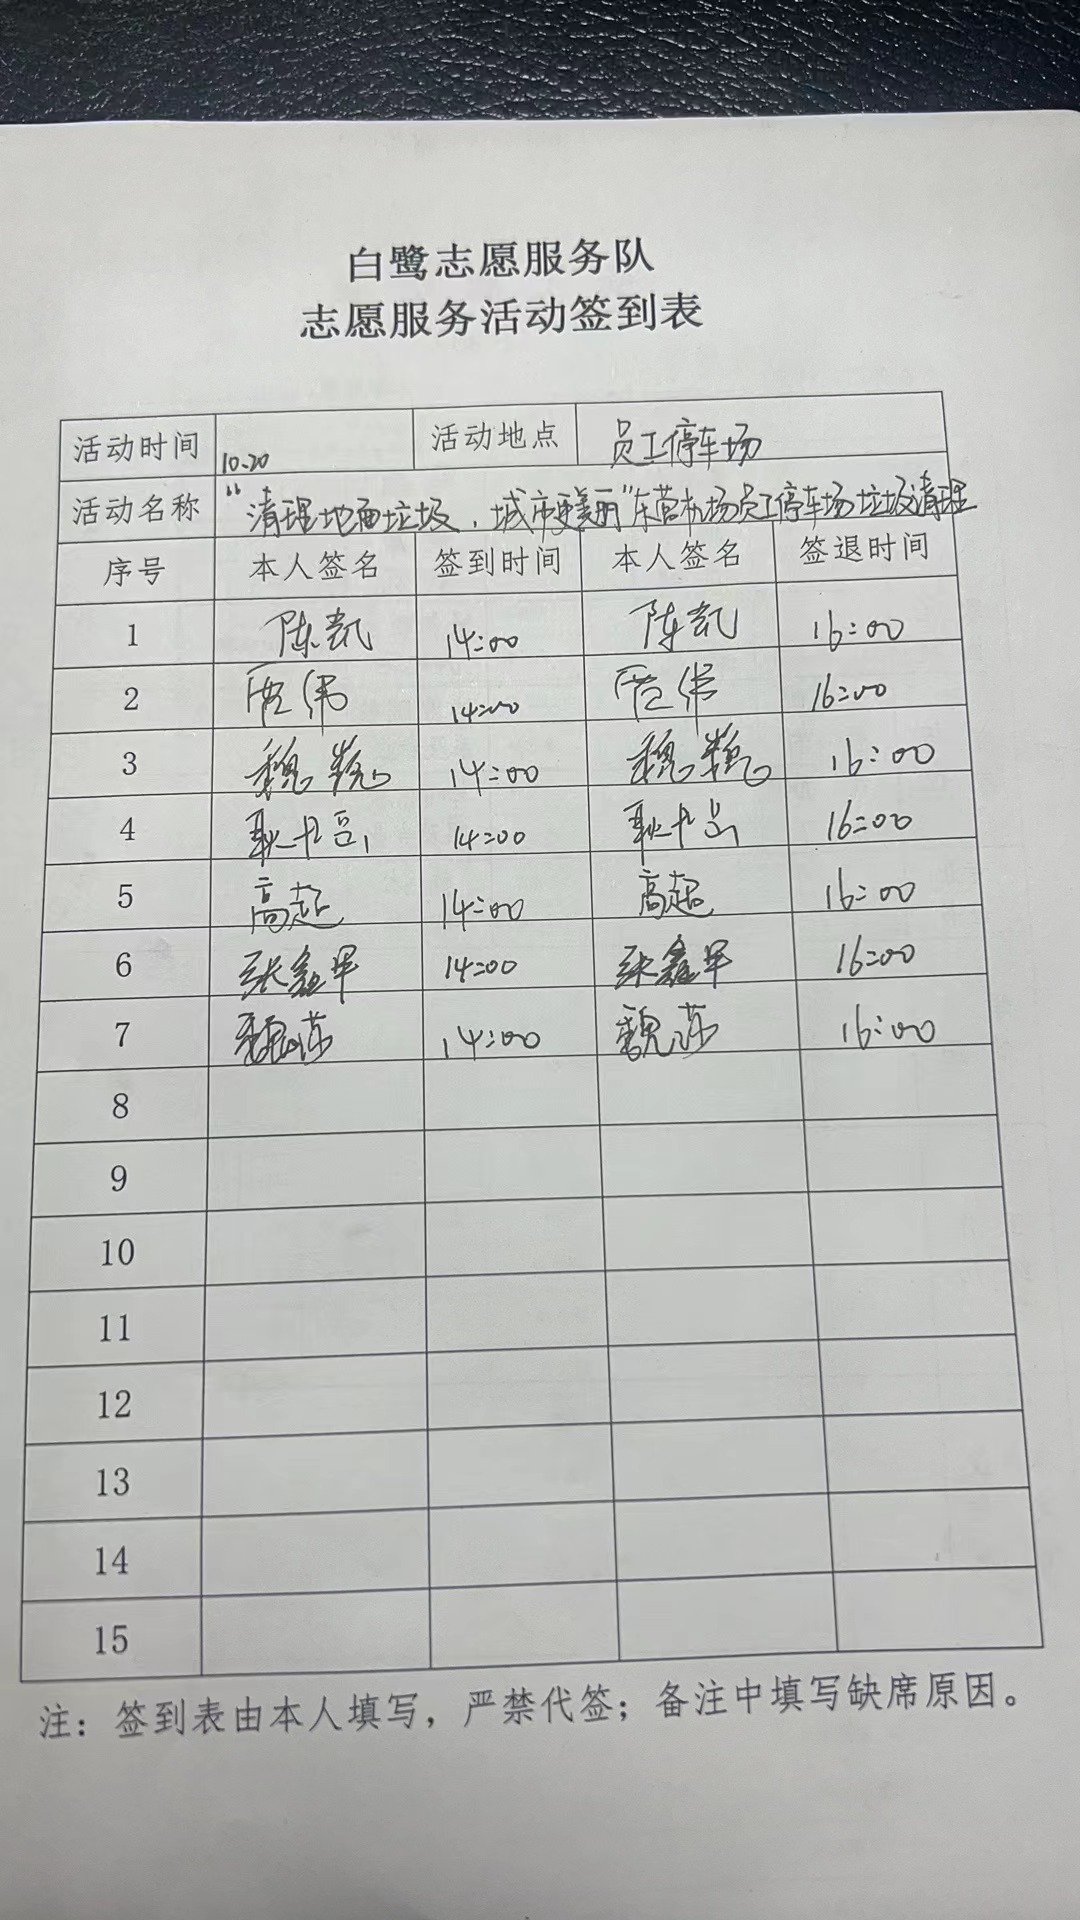 白鹭志愿服务队
志愿服务活动签到表
活动时间 10.20 活动地点 员工停车场
活动名称 “清理地面垃圾，城市更美丽”东营机场员工停车场垃圾清理
序号 本人签名 签到时间 本人签名 签退时间
1 陈凯 14:00 陈凯 16:00
2 14:00 16:00
3 魏 14:00 魏 16:00
4 耿 14:00 耿 16:00
5 高超 14:00 高超 16:00
6 张鑫军 14:00 张鑫军 16:00
7 魏 14:00 魏 16:00
8
9
10
11
12
13
14
15
注：签到表由本人填写，严禁代签；备注中填写缺席原因。